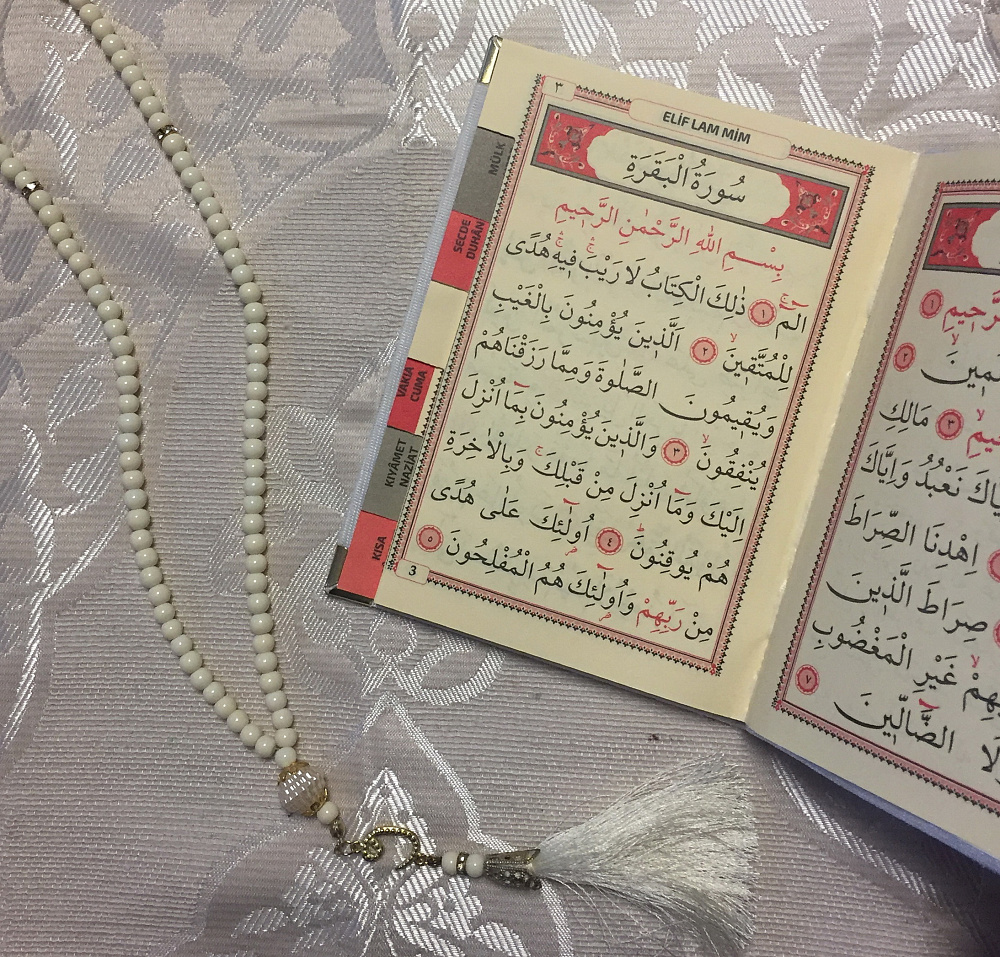 ٣
ELİF LAM MİM
سُورَةُ الْبَقَرَةِ
بِسْمِ اللهِ الرَّحْمٰنِ الرَّحِيمِ
الٓمٓ ۚ ﴿١﴾ ذٰلِكَ الْكِتَابُ لَا رَيْبَ ۚۛ فِيهِ ۚۛ هُدًى
لِلْمُتَّقِينَ ۙ ﴿٢﴾ اَلَّذِينَ يُؤْمِنُونَ بِالْغَيْبِ
وَيُقِيمُونَ الصَّلٰوةَ وَمِمَّا رَزَقْنَاهُمْ
يُنْفِقُونَ ۙ ﴿٣﴾ وَالَّذِينَ يُؤْمِنُونَ بِمَٓا اُنْزِلَ
اِلَيْكَ وَمَٓا اُنْزِلَ مِنْ قَبْلِكَ ۚ وَبِالْاٰخِرَةِ
هُمْ يُوقِنُونَ ۜ ﴿٤﴾ اُو۬لٰٓئِكَ عَلٰى هُدًى
مِنْ رَبِّهِمْ وَاُو۬لٰٓئِكَ هُمُ الْمُفْلِحُونَ ﴿٥﴾
3
MÜLK
SECDE
DUHÂN
VAKIA
CUMA
KIYÂMET
NAZİAT
KISA
﴿١﴾
﴿٢﴾
﴿٣﴾ مَالِكِ
نَعْبُدُ وَاِيَّاكَ
اِهْدِنَا الصِّرَاطَ
صِرَاطَ الَّذِينَ
غَيْرِ الْمَغْضُوبِ
الضَّٓالِّينَ ﴿٧﴾